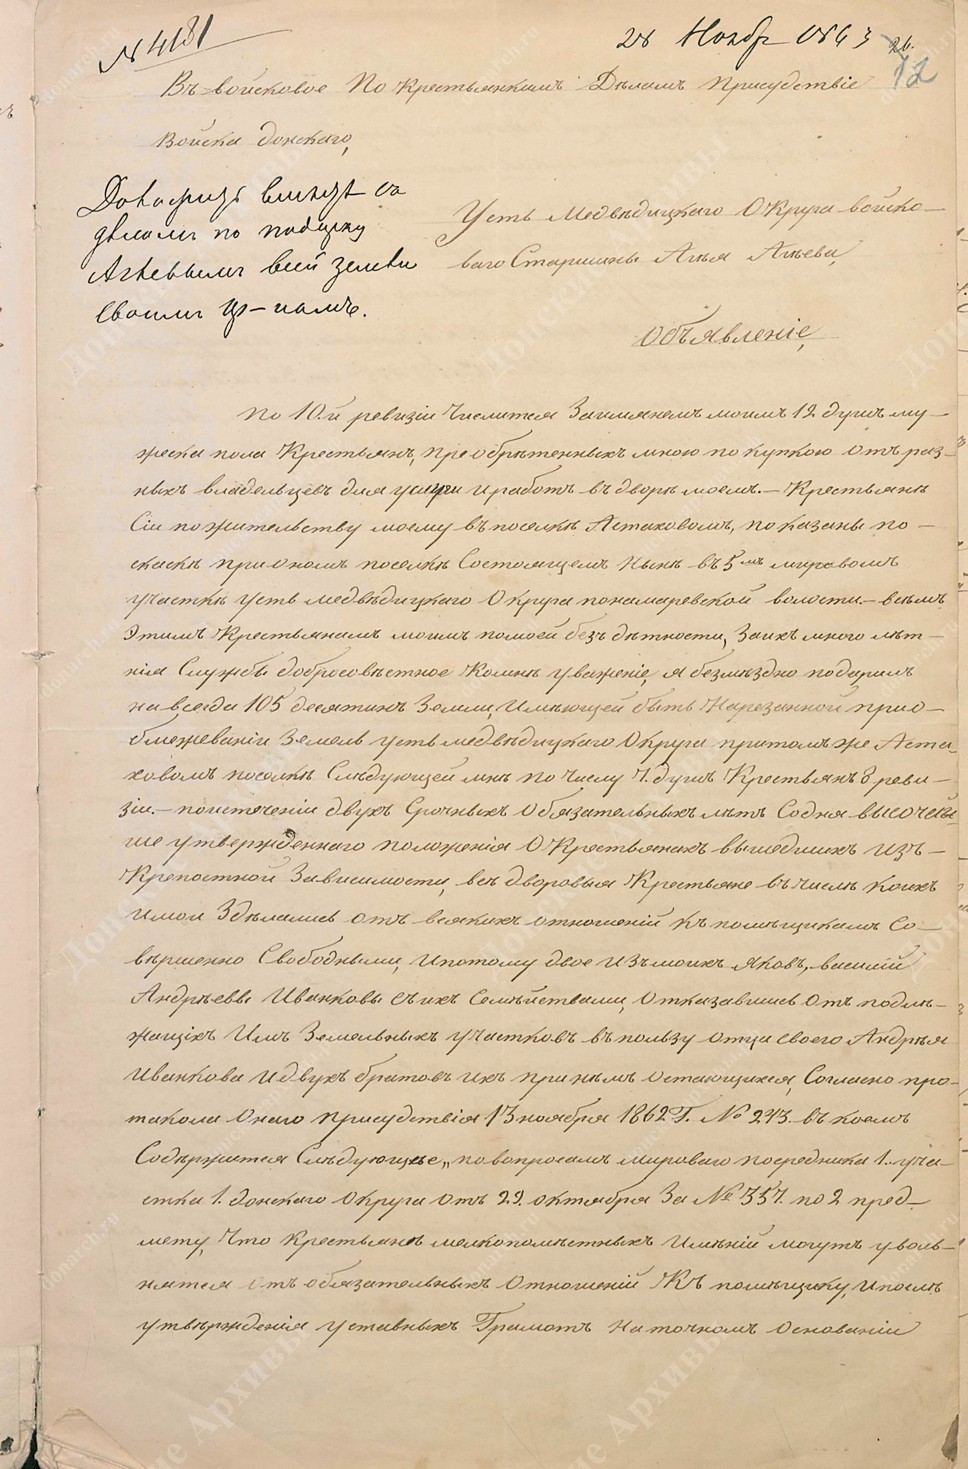 № 4181
28 Ноябр 1863
26.
12
Въ войсковое По Крестьянкимъ Дѣламъ Присудствіе
Войска донскаго,
Доложить вмѣстѣ съ
дѣломъ по подарку
Агѣевымъ всей земли
своимъ кр-намъ.
Усть Медвѣдицкаго Округа войско-
ваго Старшины Агѣева,
Объявленіе,
По 10й ревизіи Числится Заимянемъ моимъ 12 душъ му-
жеска пола Крестьянъ, преобрѣтенныхъ мною покупкою отъ раз-
ныхъ владельцевъ для услуги и работъ въ дворѣ моемъ.- Крестьянѣ
Сіи по жительству моему въ поселкѣ Астаховомъ, показаны по-
скаскѣ при ономъ поселкѣ Состоящемъ Нынѣ въ 5мъ мировомъ
участкѣ Усть медвѣдицкаго Округа понамаревской волости.- всѣмъ
Этимъ Крестьянамъ моимъ помоей безъ дѣтности, Заихъ много лѣт-
нія Службы добросовѣстное Комнѣ уваженіе, я безмѣздно подарилъ
на всегда 105 десятинъ Земли, Имѣющей быть Нарезанной при о-
бмежеваніи Земель усть медвѣдицкаго Округа притомъ же Аста-
ховомъ поселкѣ Слѣдующей мнѣ по числу 7. душъ Крестьянъ 8 реви-
зіи.- поистеченіи двухъ Срочныхъ Обязательныхъ лѣтъ Содня высочай-
ше утвержденнаго положенія О Крестьянахъ вышедшихъ Изъ-
Крепостной Зависимости, всѣ дворовыя Крестьяне въ числѣ коихъ
и мои Здѣлались отъ всякихъ отношеній Къ помѣщикамъ Со-
вѣршенно Свободными, ипотому двое Изъ моихъ Яковъ, василій
Андрѣевы Иванковы съ ихъ Семѣйствами, отказавшись отъ подлѣ-
жащихъ Имъ Земельныхъ участковъ въ пользу отца своего Андрѣя
Иванкова и двухъ братовъ ихъ принѣмъ Остающихся, Согласно про-
такола Онаго присудствія 13 ноября 1862 Г. № 243. въ коемъ
Содѣржится Слѣдующее, „по вопросамъ мироваго посредника 1. уча-
стка 1. донскаго Округа отъ 22. октября За № 357. по 2 пред-
мету, Что крестьянѣ мелкопомѣстныхъ Имѣній могутъ уволь-
нятся отъ обязательныхъ отношеній Къ помѣщику, и послѣ
утвѣржденія уставныхъ Грамотъ На точномъ Основаніи